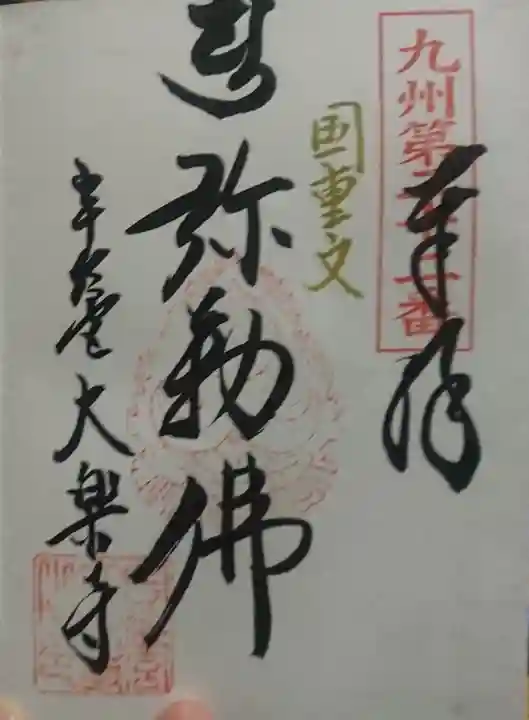 九州第二十二番
奉拝
国重文
弥勒佛
大楽寺